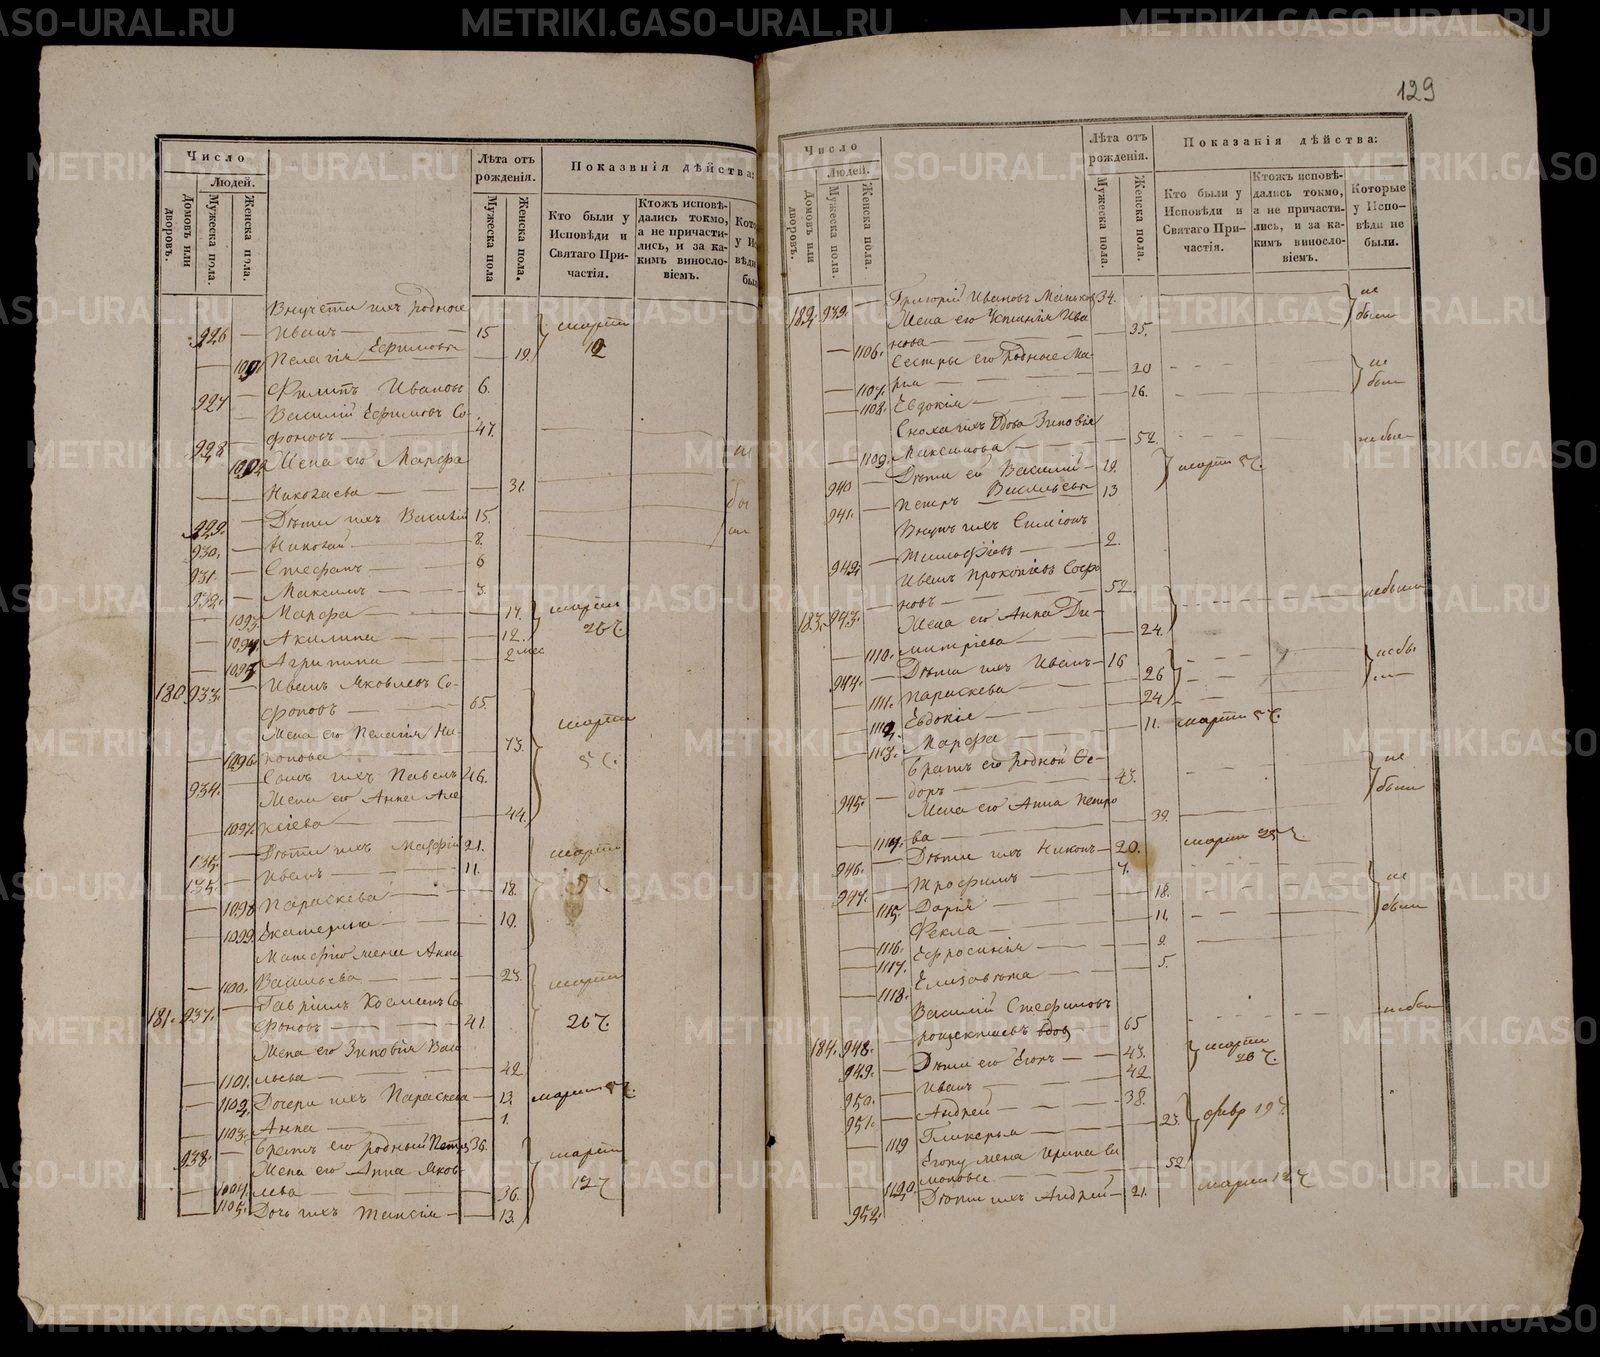 129
Число
Людей.
Домовъ или дворовъ.
Мужеска пола.
Женска пола.
Лѣта отъ рожденія.
Мужеска пола
Женска пола.
Показвнія дѣйства:
Кто были у Исповѣди и Святаго Причастія.
Ктожъ исповѣдались токмо, а не причастились, и за какимъ винословіемъ.
Внучата ихъ родные
926 Иванъ 15 марта
1091 Пелагія Ефимовы 19. 12
927 Филипъ Ивановъ 6.
Василій Ефимовъ Со-
928 фоновъ 47.
1092 Жена его Марфа
Николаева 31.
929. Дѣти ихъ Василій 15.
930. Николай 8.
931. Стефанъ 6
932. Максимъ 3.
1093. Марфа 17. марта
1094 Акилина 12. 26
1095 Агрипина 2 мес
180 933. Иванъ Яковлевъ Со-
фоновъ 65.
Жена его Пелагія Ни-
1096. конова 73. марта
934. Сынъ ихъ Павелъ 46. 5
Жена его Анна Але
1097. ксіева 44.
135. Дѣти ихъ Матфій 21. марта
135. Иванъ 11.
1098 Параскева 18.
1099. Екатерина 10.
Матфію жена Анна
1100. Васильева 23. марта
181. 937. Гавріилъ Косминъ Со
фоновъ 41. 26
Жена его Зиновія Васи
1101. льева 42
1102. Дочери ихъ Параскева 13. марта 5
1103. Анна 1.
938. Братъ его родный Петръ 36. марта
Жена его Анна Яков-
1104. лева 36. 12
1105. Дочь ихъ Таисія 13.
Число
Людей.
Домовъ или дворовъ.
Мужеска пола.
Женска пола.
Лѣта отъ рожденія.
Мужеска пола.
Женска пола.
Показанія дѣйства:
Кто были у Исповѣди и Святаго Причастія.
Ктожъ исповѣдались токмо, а не причастились, и за какимъ винословіемъ.
Которые у Исповѣди не были.
182. 939. Григорій Ивановъ 34. не
Жена его Устинія Ива были
1106. нова 35.
Сестры его родные Ма-
1107. рія 20 не
1108. Евдокія 16. были
Сноха ихъ вдова Зиновія
1109. Максимова 52. не были
940 Дѣти ея Василій 19. марта 5
941. Петръ Васильевы 13
Внукъ ихъ Симіонъ
942. Тимофѣевъ 2.
Иванъ Прокопіевъ Софо
183. 943. новъ 52. не были
Жена его Анна Ди-
1110. митріева 24.
944. Дѣти ихъ Иванъ 16
1111. Параскева 26
1112. Евдокія 24
1113. Марфа 11. марта 5
Братъ его родной Фе- не
945. доръ 43. были
Жена его Анна Петро
1114. ва 39.
946. Дѣти ихъ Никонъ 20. марта 25
947. Трофимъ 7.
1115. Дарія 18. не
1116. Фекла 11. были
1117. Ефросинія 9.
1118. Елизавета 5.
Василій Стефановъ не были
184. 948. 65
949. Дѣти его Егоръ 43. марта
950. Иванъ 42 26
951. Андрей 38.
1119 Гликерья 23. февр 19
Егору жена Ирина
1120. 52
952. Дѣти ихъ Андрей 21. марта 12
METRIKI.GASO-URAL.RU